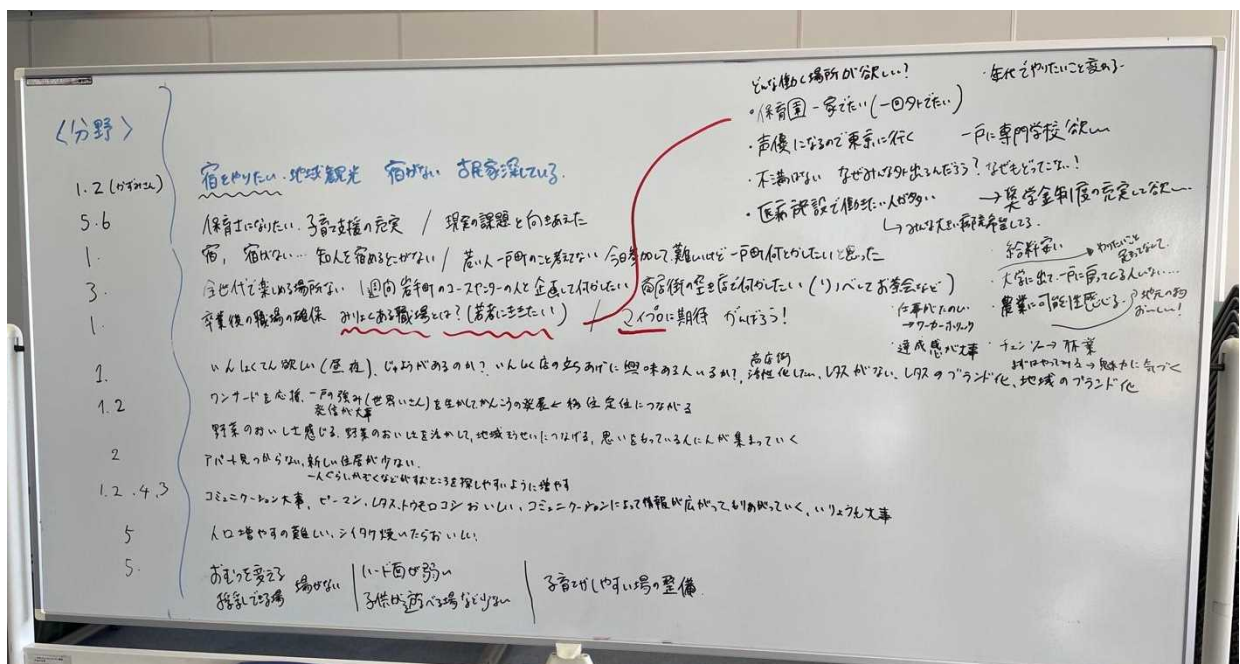 〈分野〉
1.2(かずみさん) 宿をやりたい・地域観光 宿がない 古民家探している.
5.6 保育士になりたい. 子育て支援の充実 / 現実の課題と向きあえた
1. 宿, 宿がない… 知人を宿めるとこがない / 若い人一戸町のこと考えてない / 今日参加して, 難しいけど一戸町何とかしたいと思った
3. 全世代で楽しめる場所ない 1週間岩手町のユースセンターの人と企画して何かしたい 商店街の空き店で何かしたい(リノベしてお茶会など)
1. 卒業後の職場の確保 みりょくある職場とは?(若者にききたい) / マイプロに期待 がんばろう!
1. いんしょくてん欲しい(昼夜), じゅようがあるのか? いんしょく店の立ちあげに興味ある人いるか?, 商店街活性化したい, レタスがない, レタスのブランド化, 地域のブランド化
1.2 ワンナードを応援, 一戸の強み(世界いさん)を生かしてかんこうの発展 ← 移住定住につながる
発信が大事
野菜のおいしさ感じる, 野菜のおいしさを活かして, 地域そうせいにつなげる, 思いをもっている人に人が集まっていく
2 アパート見つからない, 新しい住居が少ない.
一人ぐらし, かぞくなどがすむところを探しやすいように増やす
1.2.4.3 コミュニケーション大事, ピーマン, レタス, トウモロコシおいしい, コミュニケーションによって情報が広がって, もりあがっていく, いりょうも大事
5 人口増やすの難しい, シイタケ焼いたらおいしい.
5. おむつを変える 授乳できる場 場がない | ハード面が弱い 子供が遊べる場など少ない | 子育てがしやすい場の整備.
どんな働く場所が欲しい?
・年代でやりたいこと変わる-
・保育園-家でたい(一回外でたい)
・声優になるので東京に行く 一戸に専門学校欲しい
・不満はない なぜみんな外出るんだろう? なぜもどってこない!
・医療施設で働きたい人が多い → 奨学金制度の充実して欲しい
↳みんな大きい病院希望してる.
・給料安い → やりたいこと
・大学に出て一戸に帰ってくる人いない…
・農業に可能性感じる 地元の物おいしい!
・仕事がたのしい
→ワーカーホリック
・達成感が大事
・チェンソー → 林業
→ 魅力に気づく